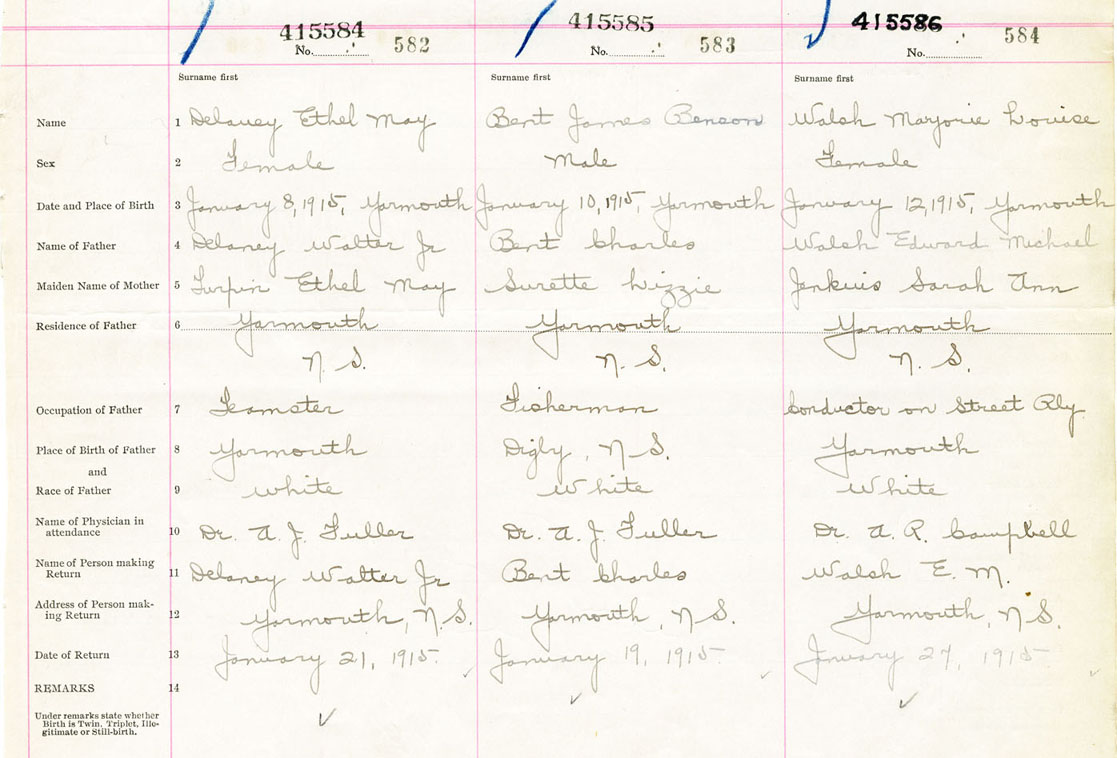 415584 415585 415586
No. 582 No. 583 No. 584
Surname first Surname first Surname first
Name 1 Delaney Ethel May Bent James Benson Walsh Marjorie Louise
Sex 2 Female Male Female
Date and Place of Birth 3 January 8, 1915, Yarmouth January 10, 1915, Yarmouth January 12, 1915, Yarmouth
Name of Father 4 Delaney Walter Jr Bent Charles Walsh Edward Michael
Maiden Name of Mother 5 Turpin Ethel May Surette Lizzie Jenkins Sarah Ann
Residence of Father 6 Yarmouth Yarmouth Yarmouth
N. S. N. S. N. S.
Occupation of Father 7 Teamster Fisherman Conductor on Street Rly
Place of Birth of Father 8 Yarmouth Digby, N. S. Yarmouth
and
Race of Father 9 White White White
Name of Physician in
attendance 10 Dr. A. J. Fuller Dr. A. J. Fuller Dr. A. R. Campbell
Name of Person making
Return 11 Delaney Walter Jr Bent Charles Walsh E. M.
Address of Person mak-
ing Return 12 Yarmouth, N. S. Yarmouth, N S. Yarmouth, N S.
Date of Return 13 January 21, 1915 January 19, 1915 January 27, 1915
REMARKS 14
Under remarks state whether
Birth is Twin, Triplet, Ille-
gitimate or Still-birth.